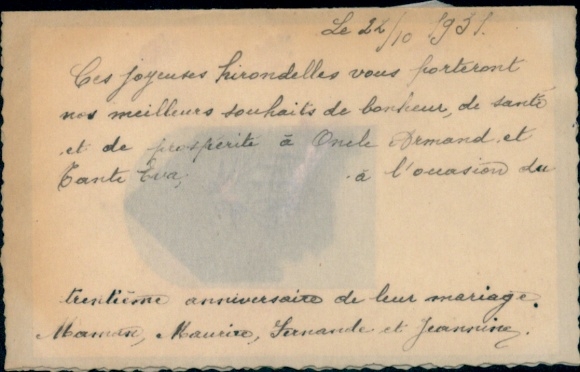 Le 22/10 1931.
Ces joyeuses hirondelles vous porteront
nos meilleurs souhaits de bonheur, de santé
et de prospérité à Oncle Armand et
Tante Eva, à l'occasion du
trentième anniversaire de leur mariage.
Maman, Maurice, Fernande et Jeannine.